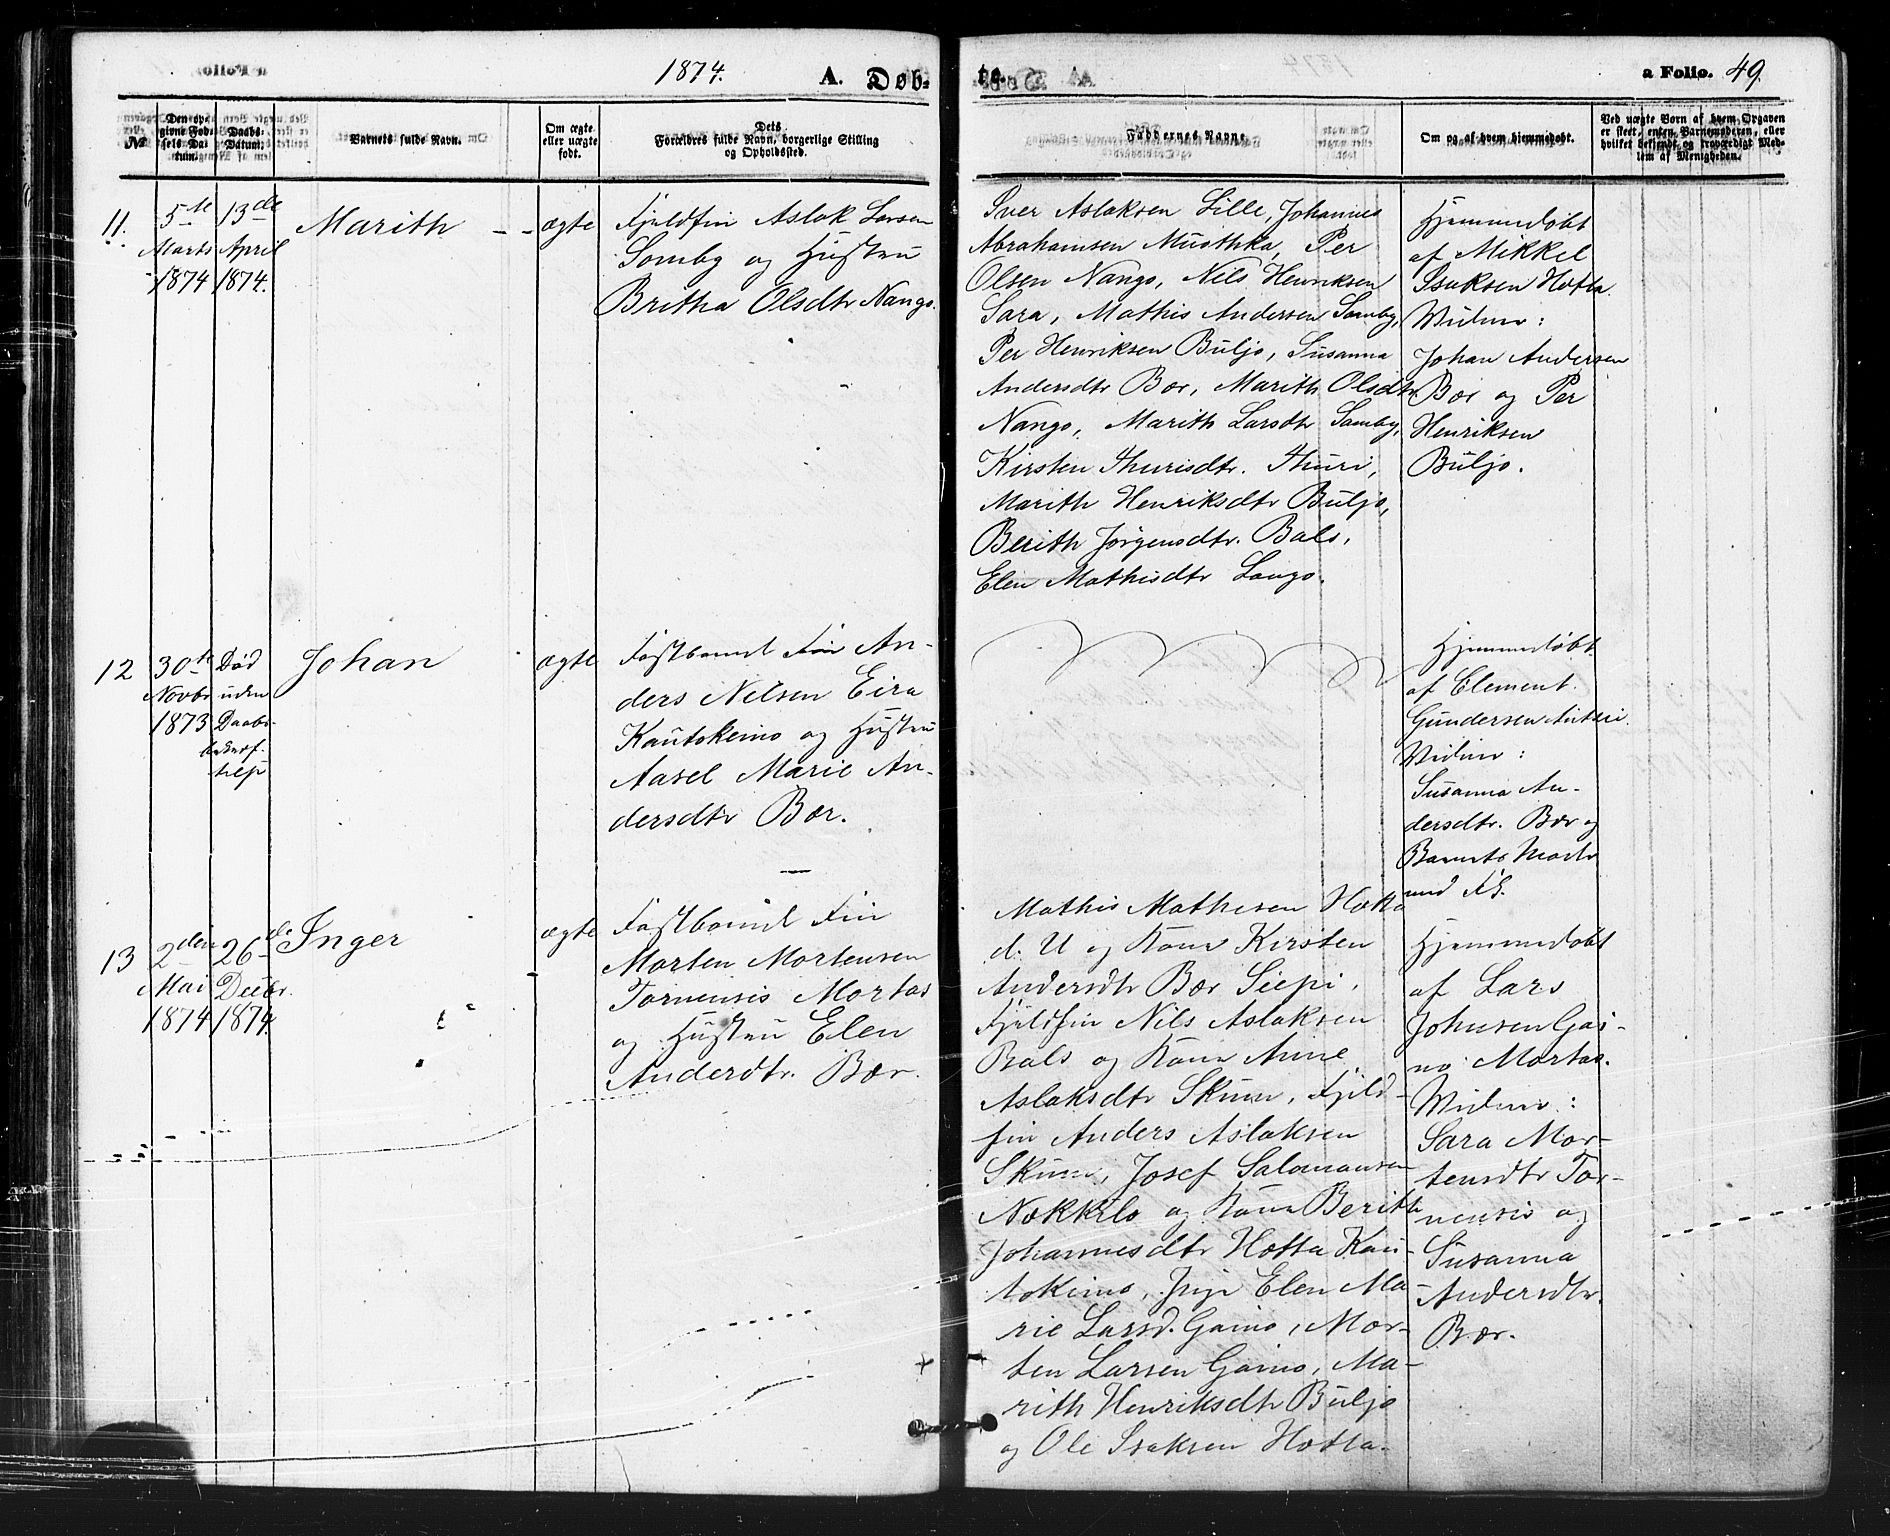 1874. A. Døb-
te. a Folio. 49.
№
Den op-
givne Fød-
sels Da-
tum.
Daabs-
Datum.
Barnets fulde Navn.
Om ægte
eller uægte
født.
Dets
Forældres fulde Navn, borgerlige Stilling
og Opholdssted.
Faddernes Navne.
Om og af hvem hjemmedøbt.
Ved uægte Børn af hvem Opgaven
er skeet, enten Barnemoderen, eller
hvilket bekjendt og troværdigt Med-
lem af Menigheden.
11.
5te
Marts
1874
13de
April
1874.
Marith - -
ægte
Fjeldfin Aslak Larsen
Somby og Hustru
Britha Olsdtr Nango.
Iver Aslaksen Lille, Johannes
Abrahamsen Muothka, Per
Olsen Nango, Nils Henriksen
Sara, Mathis Andersen Somby,
Per Henriksen Buljo, Susanna
Andersdtr Bær, Marith Olsdtr
Nango, Marith Larsdtr Somby,
Kirsten Thurisdtr. Thuri,
Marith Henriksdtr Buljo,
Berith Jørgensdtr. Bals,
Elen Mathisdtr Lango.
Hjemmedøbt
af Mikkel
Isaksen Hætta.
Vidner:
Johan Andersen
Bær og Per
Henriksen
Buljo.
12
30te
Novbr
1873
Død
uden
Daabs-
bekræf-
telse
Johan
ægte
Fastboend Fin An-
ders Nilsen Eira
Kautokeino og Hustru
Aasel Marie An-
dersdtr Bær.
Hjemmedøbt
af Clement
Gundersen
Vidner:
Susanna An-
dersdtr. Bær og
Barnets Moder
13
2den
Mai
1874
26de
Decbr.
1874
Inger
ægte
Fastboend Fin
Morten Mortensen
Tornensis Mortas
og Hustru Elen
Anderdtr. Bær.
Mathis Mathisen Hætta
d. U og Kone Kirsten
Andersdtr Bær Siepi,
Fjeldfin Nils Aslaksen
Bals og Kone Anne
Aslaksdtr Skum, Fjeld-
fin Anders Aslaksen
Skum, Josef Salomonsen
Nækkelo og Kone Berith
Johannesdtr Hætta Kau-
tokeino, Pige Elen Ma-
rie Larsd. Gaino, Mor-
ten Larsen Gaino, Ma-
rith Henriksdtr Buljo
og Ole Isaksen Hætta.
Hjemmedøbt
af Lars
Johnsen Gai-
no Mortas.
Vidner:
Sara Mor-
tensdtr Tor-
nensis og
Susanna
Andersdtr.
Bær.